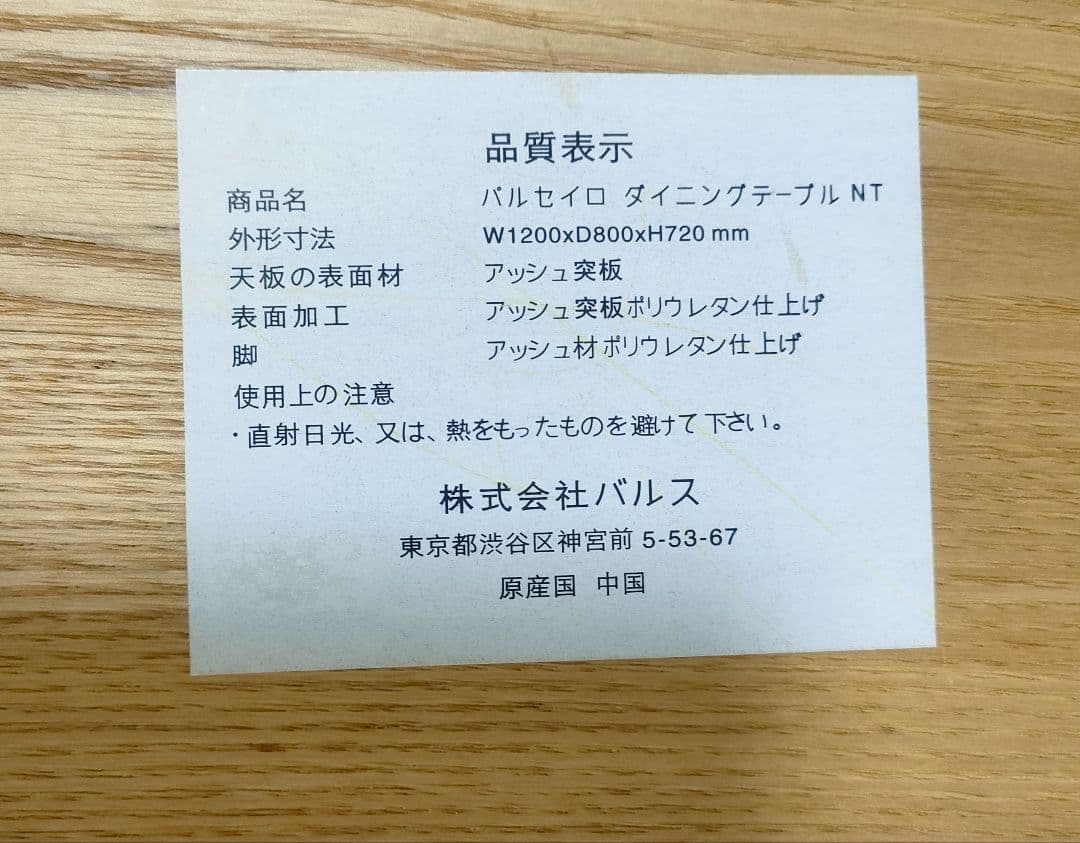 品質表示
商品名 パルセイロ ダイニングテーブル NT
外形寸法 W1200xD800xH720 mm
天板の表面材 アッシュ突板
表面加工 アッシュ突板ポリウレタン仕上げ
脚 アッシュ材ポリウレタン仕上げ
使用上の注意
・直射日光、又は、熱をもったものを避けて下さい。
株式会社バルス
東京都渋谷区神宮前 5-53-67
原産国 中国